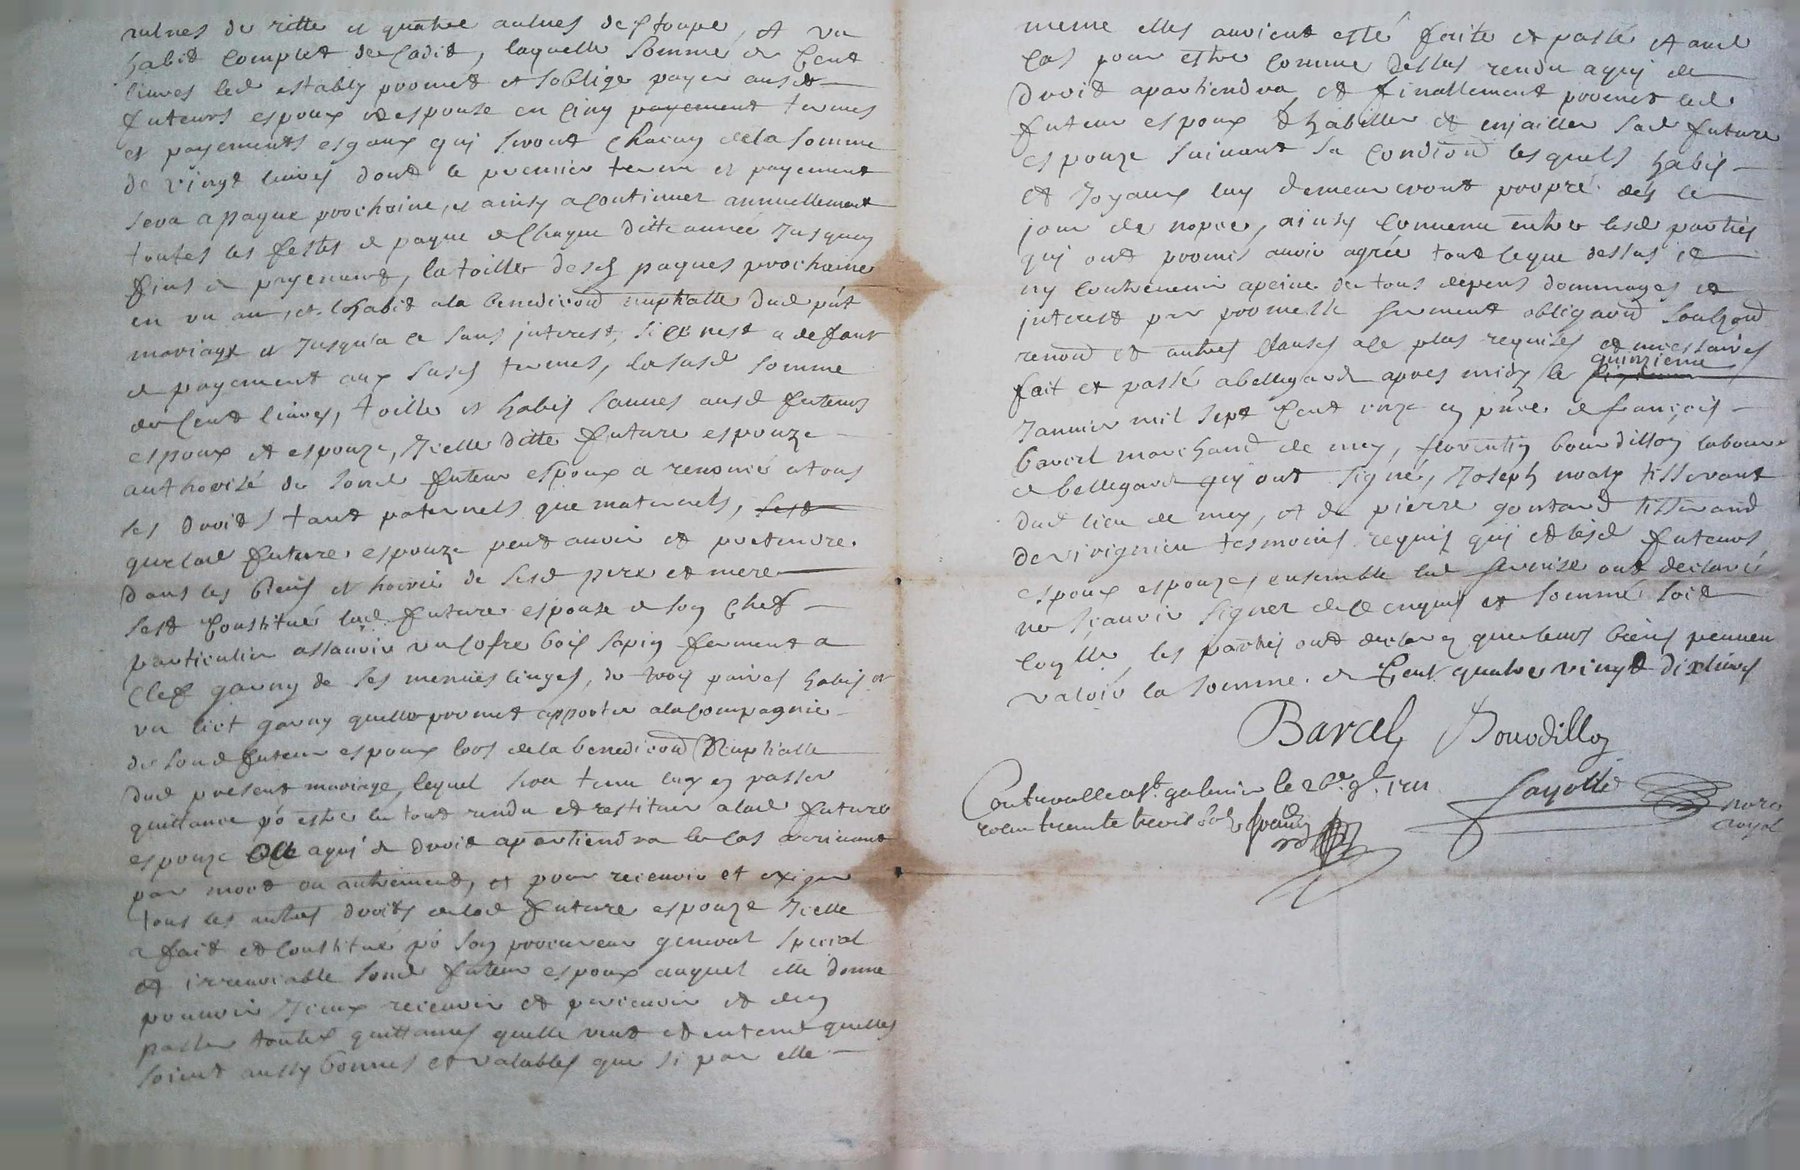 aulnes de ritte et quatre aulnes destoupe, et un
habit complet de cadit, laquelle somme de cent
livres led estably promet et soblige payer ausd
futeurs espoux et espouse en cinq payement termes
et payements esgaux qui seront chacun de la somme
de vingt livres dont le premier terme et payement
sera a paque prochaine, et ainsy a continuer annuellement
toutes les festes de paque de chaque ditte année jusques
fins de payement, la toille desd paques prochaine
en un an, et lhabit a la benediction nuptialle dud pnt
mariage et jusqua ce sans interest, si ce nest a defaut
de payement aux susd termes, lasusd somme
de cent livres, toille et habis ausd futeurs
espoux et espouze, icelle ditte future espouze
authorisé de sond futeur espoux a renoncé a tous
ses droits tant paternels que maternels,
que lad future espouze peut avoir et pretendre
dans les biens et hoirie de sesd pere et mere
sest constitué lad future espouse de son chef
particulier assavoir un cofre bois sapin fermant a
clef garny de ses menues linges, de trois paires habis et
un lict garny quelle promet apporter a la compagnie
de sond futeur espoux lors de la benediction nuptialle
dud present mariage, lequel sera tenu luy en passer
quittance po estre le tout rendu et restituer a lad future
espouze ou a qui de droit apartiendra le cas arrivant
par mort ou autrement, et pour recevoir et exiger
tous les autres droits de lad future espouze icelle
a fait et constitué po son procureur general special
et irrevocable sond futeur espoux auquel elle donne
pouvoir iceux recevoir et percevoir et den
passer toutes quittances quelle veut et entend quelles
soient aussy bonnes et valables que si par elle
meme elles avoient esté faite et passé et aud
cas pour estre comme dessus rendu a qui de
droit apartiendra, et finallement promet led
futeur espoux dhabiller et enjailler sad future
espouze suivant sa condition lesquels habis
et joyaux luy demeureront propre des le
jour de nopce, ainsy convenu entre lesd parties
qui ont promis avoir agréé tout ce que dessus et
ny contrevenir a peine de tous depens dommages et
interest par promesse serment obligaon
renon et autres clauses a ce plus requises et necessaires
fait et passé a bellegarde apres midy le quinzieme
janvier mil sept cent onze en pnce de françois
barcel marchand de mey, florentin bourdillon laboureur
de bellegarde qui ont signé, joseph tisserant
dud lieu de mey, et de pierre goutard tisserand
de virignieu tesmoins requis qui et lesd futeurs
espoux espouzes ensemble lad ont declaré
ne sçavoir signer de ce enquis et sommé soit
les parties ont declaré que leurs biens peuvent
valoir la somme de cent quatre vingt dix livres
Barcel Bourdillon
Contrerolle a St galmier le 26e gr 1711
recu trente trois sols
Fayolle nore royal